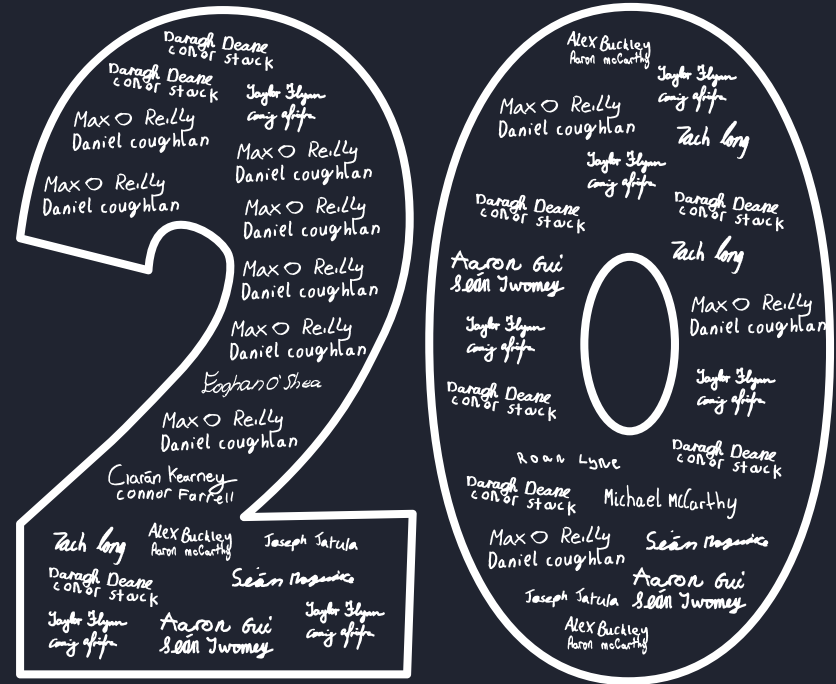 Daragh Deane
conor stack
Daragh Deane
conor stack
Taylor Flynn
craig afrifa
Max O Reilly
Daniel coughlan
Max O Reilly
Daniel coughlan
Max O Reilly
Daniel coughlan
Max O Reilly
Daniel coughlan
Max O Reilly
Daniel coughlan
Max O Reilly
Daniel coughlan
Eoghan O'Shea
Max O Reilly
Daniel coughlan
Ciarán Kearney
connor Farrell
Zach long
Alex Buckley
Aaron mcCarthy
Joseph Jatula
Daragh Deane
conor stack
Seán
Taylor Flynn
craig afrifa
Aaron Gui
Seán Twomey
Taylor Flynn
craig afrifa
Alex Buckley
Aaron mcCarthy
Taylor Flynn
craig afrifa
Max O Reilly
Daniel coughlan
Zach long
Taylor Flynn
craig afrifa
Daragh Deane
conor stack
Daragh Deane
conor stack
Zach long
Aaron Gui
Seán Twomey
Max O Reilly
Daniel coughlan
Taylor Flynn
craig afrifa
Taylor Flynn
craig afrifa
Daragh Deane
conor stack
Daragh Deane
conor stack
Roan Lyne
Daragh Deane
conor stack
Michael McCarthy
Max O Reilly
Daniel coughlan
Seán
Aaron Gui
Seán Twomey
Joseph Jatula
Alex Buckley
Aaron mcCarthy